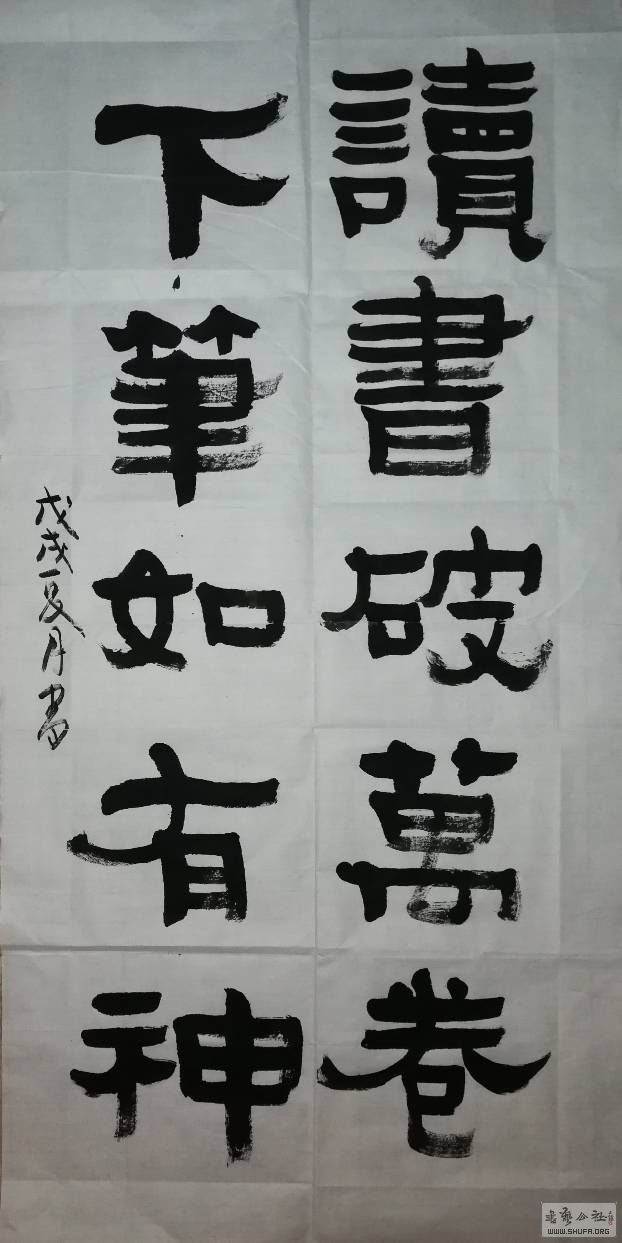 讀書破萬卷
下筆如有神
戊戌夏月書
书艺公社
WWW.SHUFA.ORG